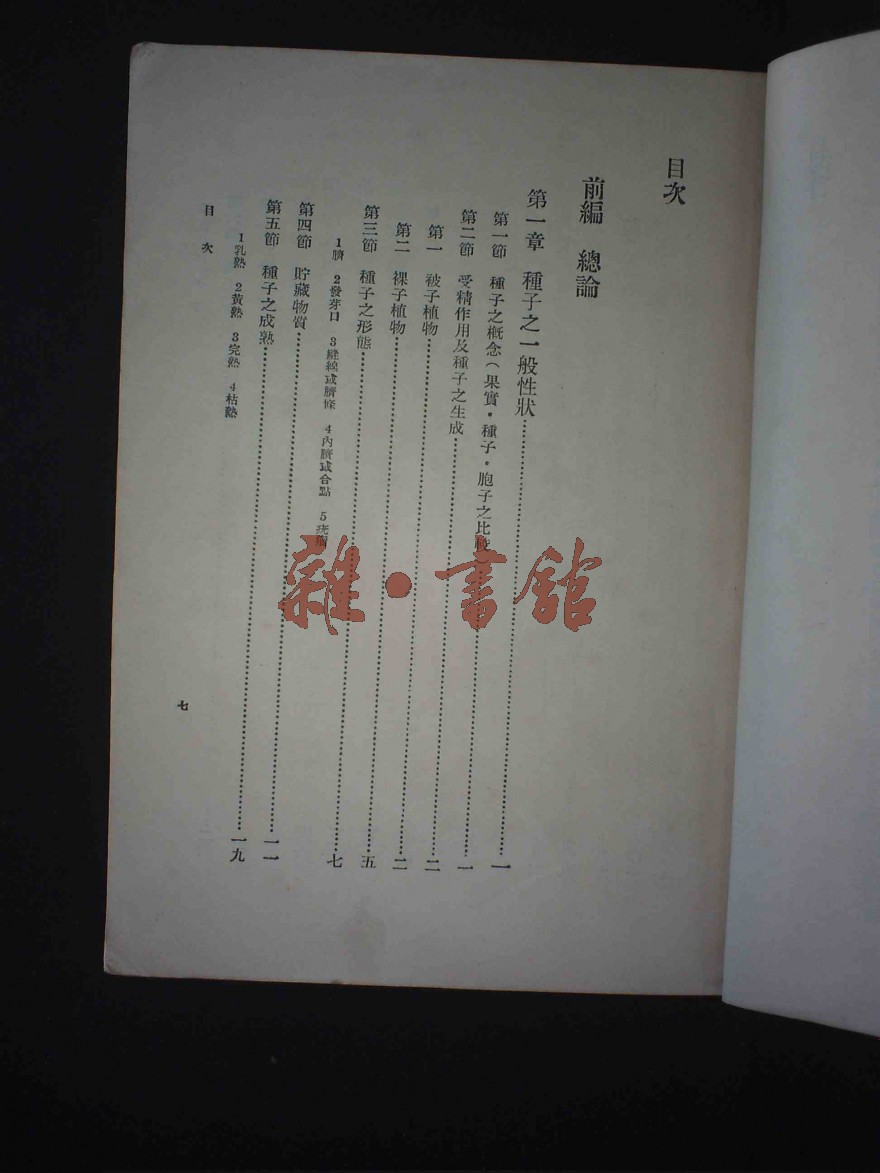 目次
前編 總論
第一章 種子之一般性狀……一
第一節 種子之概念(果實·種子·胞子之比較……一
第二節 受精作用及種子之生成……二
第一 被子植物……二
第二 裸子植物……五
第三節 種子之形態……七
1臍 2發芽口 3縫線或臍條 4內臍或合點 5疣瘤
第四節 貯藏物質……一一
第五節 種子之成熟……一九
1乳熟 2黃熟 3完熟 4枯熟
目次
七
雜·書館